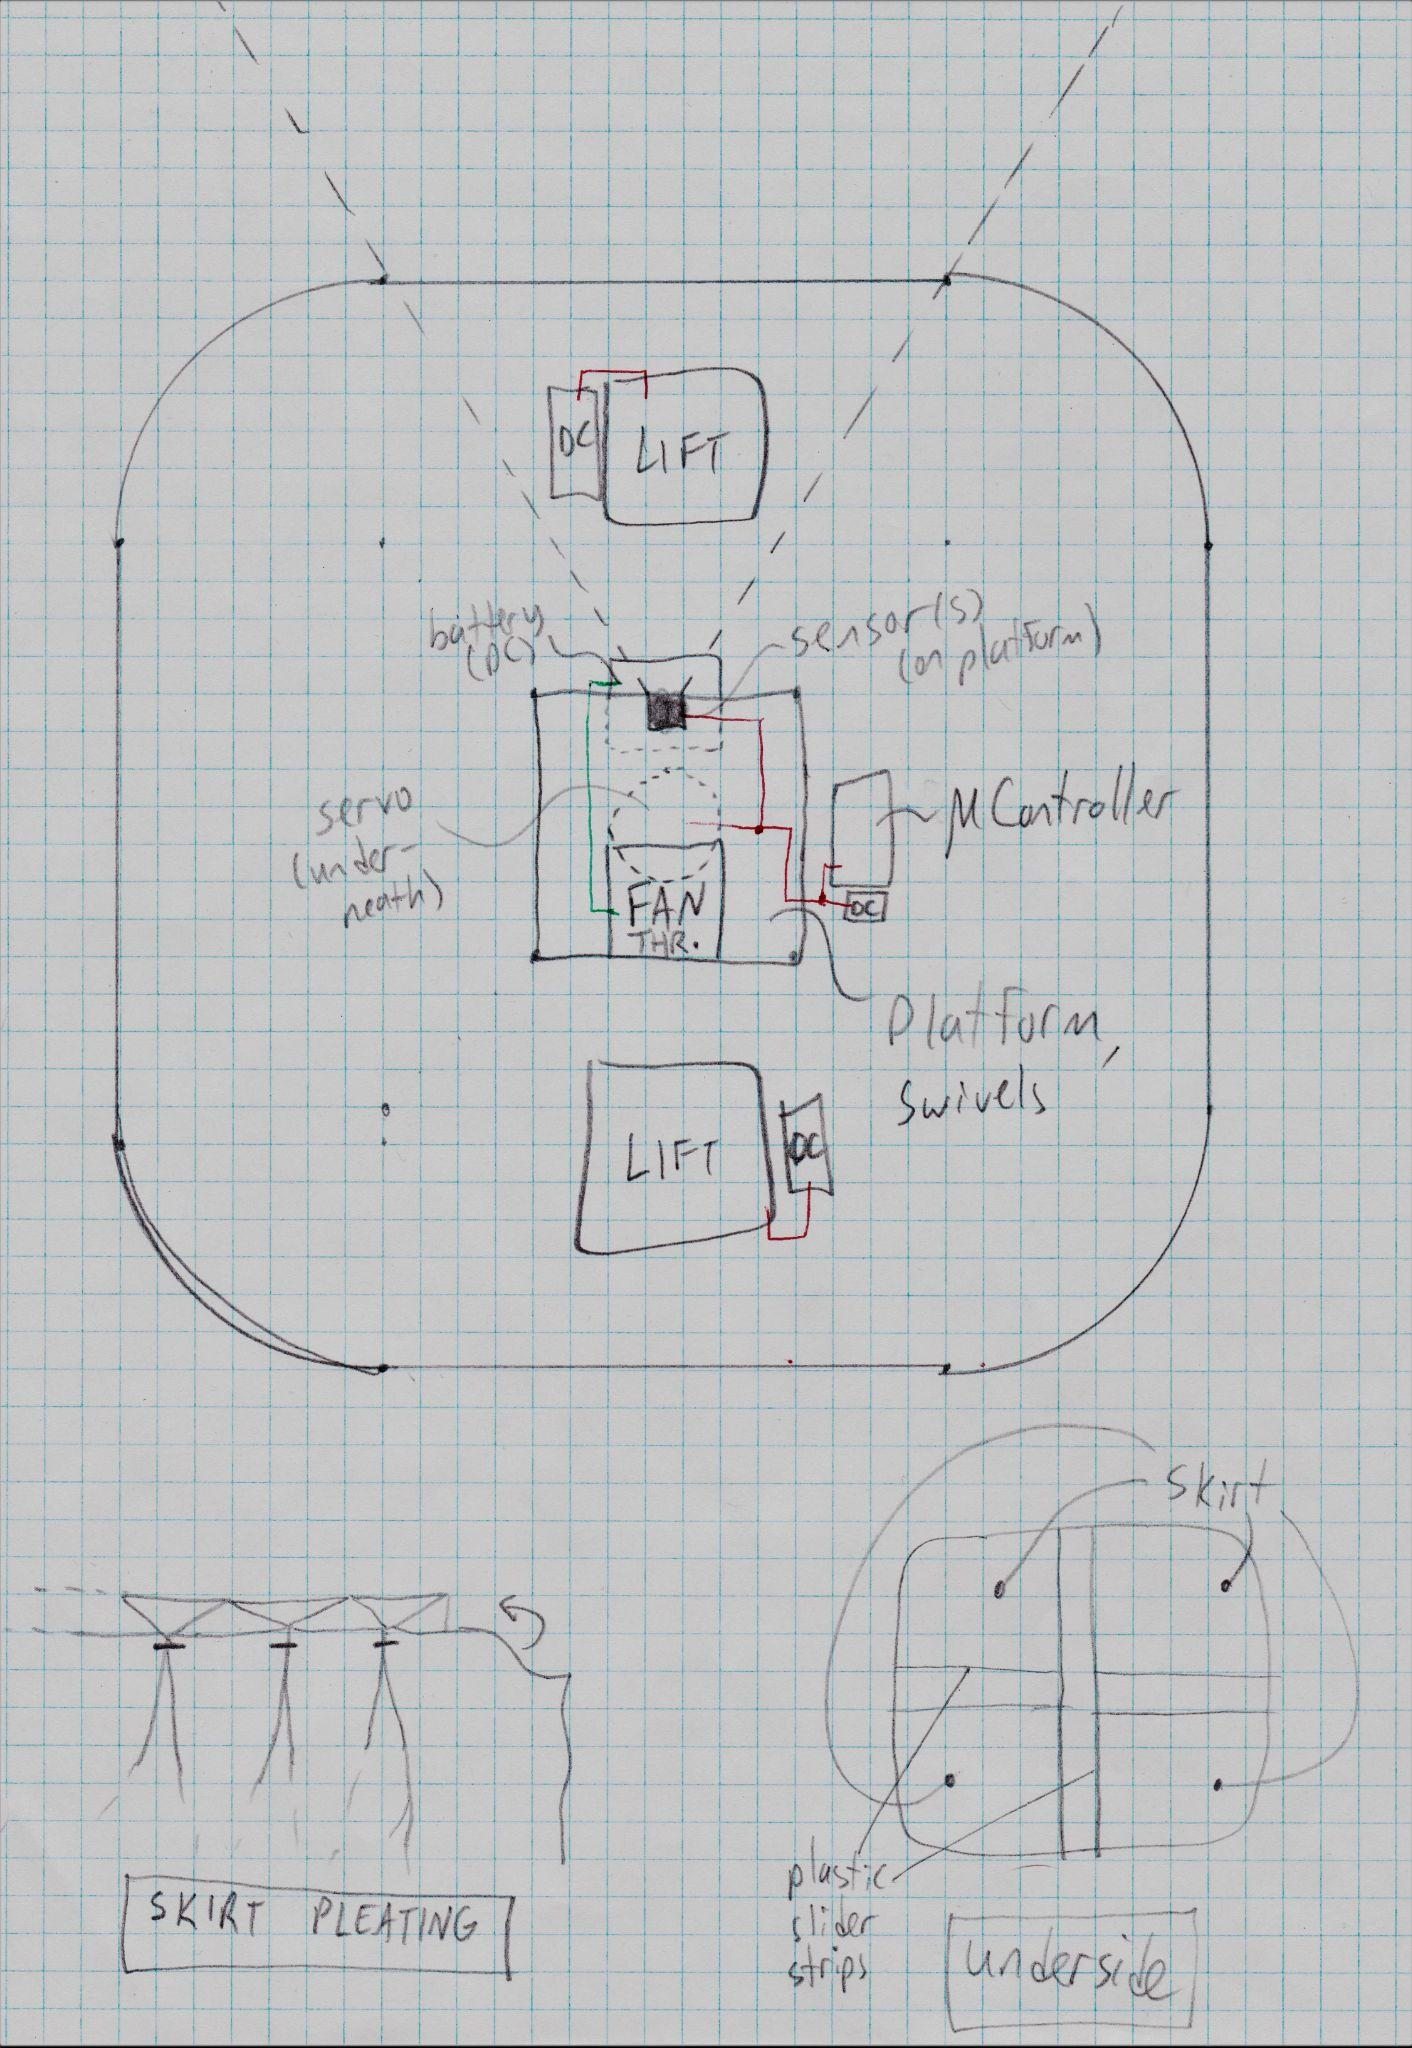 DC
LIFT
battery
(DC)
sensor(s)
(on platform)
servo
(under-
neath)
μController
FAN
THR.
DC
Platform,
swivels
LIFT
DC
skirt
plastic
slider
strips
SKIRT PLEATING
underside